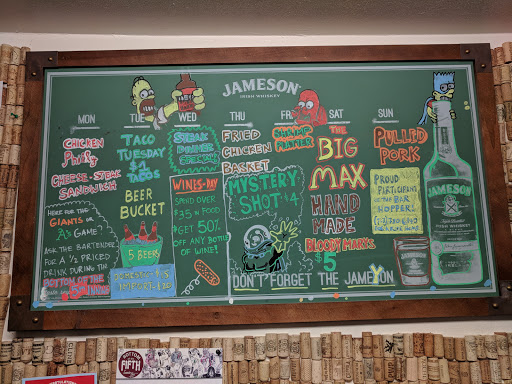 JAMESON
IRISH WHISKEY
MON TUE WED THU FRI SAT SUN
CHICKEN
Philly
CHEESE-STEAK
SANDWICH
HERE FOR THE
GIANTS vs
A's GAME?
ASK THE BARTENDER
FOR A 1/2 PRICED
DRINK DURING THE
BOTTOM OF THE
5TH
TACO
TUESDAY
$4
TACOS
BEER
BUCKET
5 BEERS
DOMESTIC $15
IMPORT $20
STEAK
DINNER
SPECIAL
WINES-DAY
SPEND OVER
$35 IN FOOD
GET 50%
OFF ANY BOTTLE
OF WINE!
FRIED
CHICKEN
BASKET
MYSTERY
SHOT $4
SHRIMP
PLATTER
THE
BIG
MAX
HAND
MADE
BLOODY MARYS
$5
PULLED
PORK
PROUD
PARTICIPANT
OF THE
BAR
HOPPERS
JAMESON
IRISH WHISKEY
DON'T FORGET THE JAMEYON
BOTTOM
FIFTH